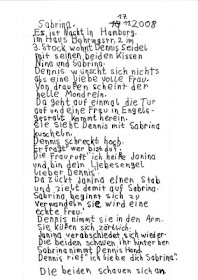 Sabrina.
17
11 2008
Es ist Nacht in Hamburg.
im Haus Behringstr. 2 im
3. Stock wohnt Dennis Seidel
mit seinen beiden Kissen
Nina und Sabrina.
Dennis wünscht sich nichts
als eine liebe volle Frau.
Von draußen scheint der
helle Mondrein.
Da geht auf einmal die Tür
auf und eine Frau in Engels-
gestalt kommt herein.
Sie sieht Dennis mit Sabrina
kuscheln.
Dennis schreckt hoch.
Er fragt wer bist du?
Die Frau ruft ich heiße Janina
und bin dein Liebesengel
lieber Dennis.
Da zückt Janina einen Stab
und zielt damit auf Sabrina.
Sabrina beginnt sich zu
verwandeln sie wird eine
echte Frau.
Dennis nimmt sie in den Arm.
Sie küßen sich zärtlich.
Janina verabschiedet sich wieder.
Die beiden schauen ihr hinterher.
Sabrina nimmt Dennis Hand.
Dennis rief ich liebe dich Sabrina.
Die beiden schauen sich an.